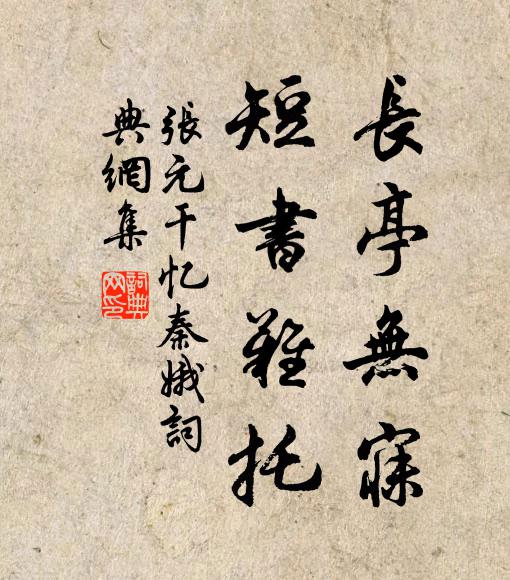 長亭無寐
短書難托
張元干忆秦娥詞
典網集
詞典网印